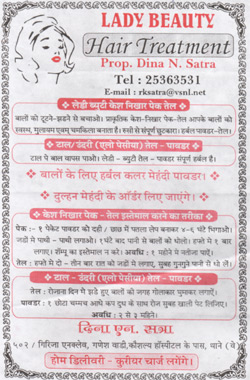 LADY BEAUTY
Hair Treatment
Prop. Dina N. Satra
Tel : 25363531
E-mail : rksatra@vsnl.net
लेडी ब्युटी केश निखार पेक तेल
बालों को टूटने-झड़ने से बचाओ। प्राकृतिक केश-निखार पेक-तेल आपके बालों को
स्वस्थ, मुलायम एवम् चमकिला बनाता है। रुसी से संपूर्ण छुटकारा। हर्बल पावडर-तेल।
टाल/उंदरी (एलो पेसीया) तेल - पावडर
टाल पे बाल वापस पाओ। लेडी - ब्युटी तेल - पावडर संपूर्ण हर्बल हैं।
बालों के लिए हर्बल कलर मेहंदी पावडर।
दुल्हन मेहंदी के ऑर्डर लिए जाएंगे।
केश निखार पेक - तेल इस्तेमाल करने का तरीका
पेक :- १ पेकेट पावडर को दही / छाछ में पतला लेप बनाकर ४-६ घंटे भिगाओ।
जड़ों में पाथी - पाथी लगाओ। १ घंटे बाद पानी से बालों को धोलो। हफ्ते में १ बार
लगाए। शैम्पू का इस्तेमाल न करे। अवधि : १ महिने में नतीजा पाएं।
तेल : हफ्ते में दो - तीन बार रात को जड़ों में लगाए, सुबह गुनगुने पानी से धो डाले।
टाल - उंदरी (एलो पेसीया) तेल - पावडर
तेल : रोजाना दिन में झड़े हुए बालों की जगह गोलाकार घुमाकर लगाएँ।
पावडर : १ छोटा चम्मच आधे कप दुध के साथ रोज सुबह खाली पेट लिजिए।
अवधि : २ से ३ महिने।
दिना एन. सत्रा
५०२ / गिरिजा एनक्लेव, गणेश वाडी,कौशल्य हॉस्पीटल के पास, थाने (वे)
होम डिलीवरी - कुरीयर चार्ज लगेंगे।